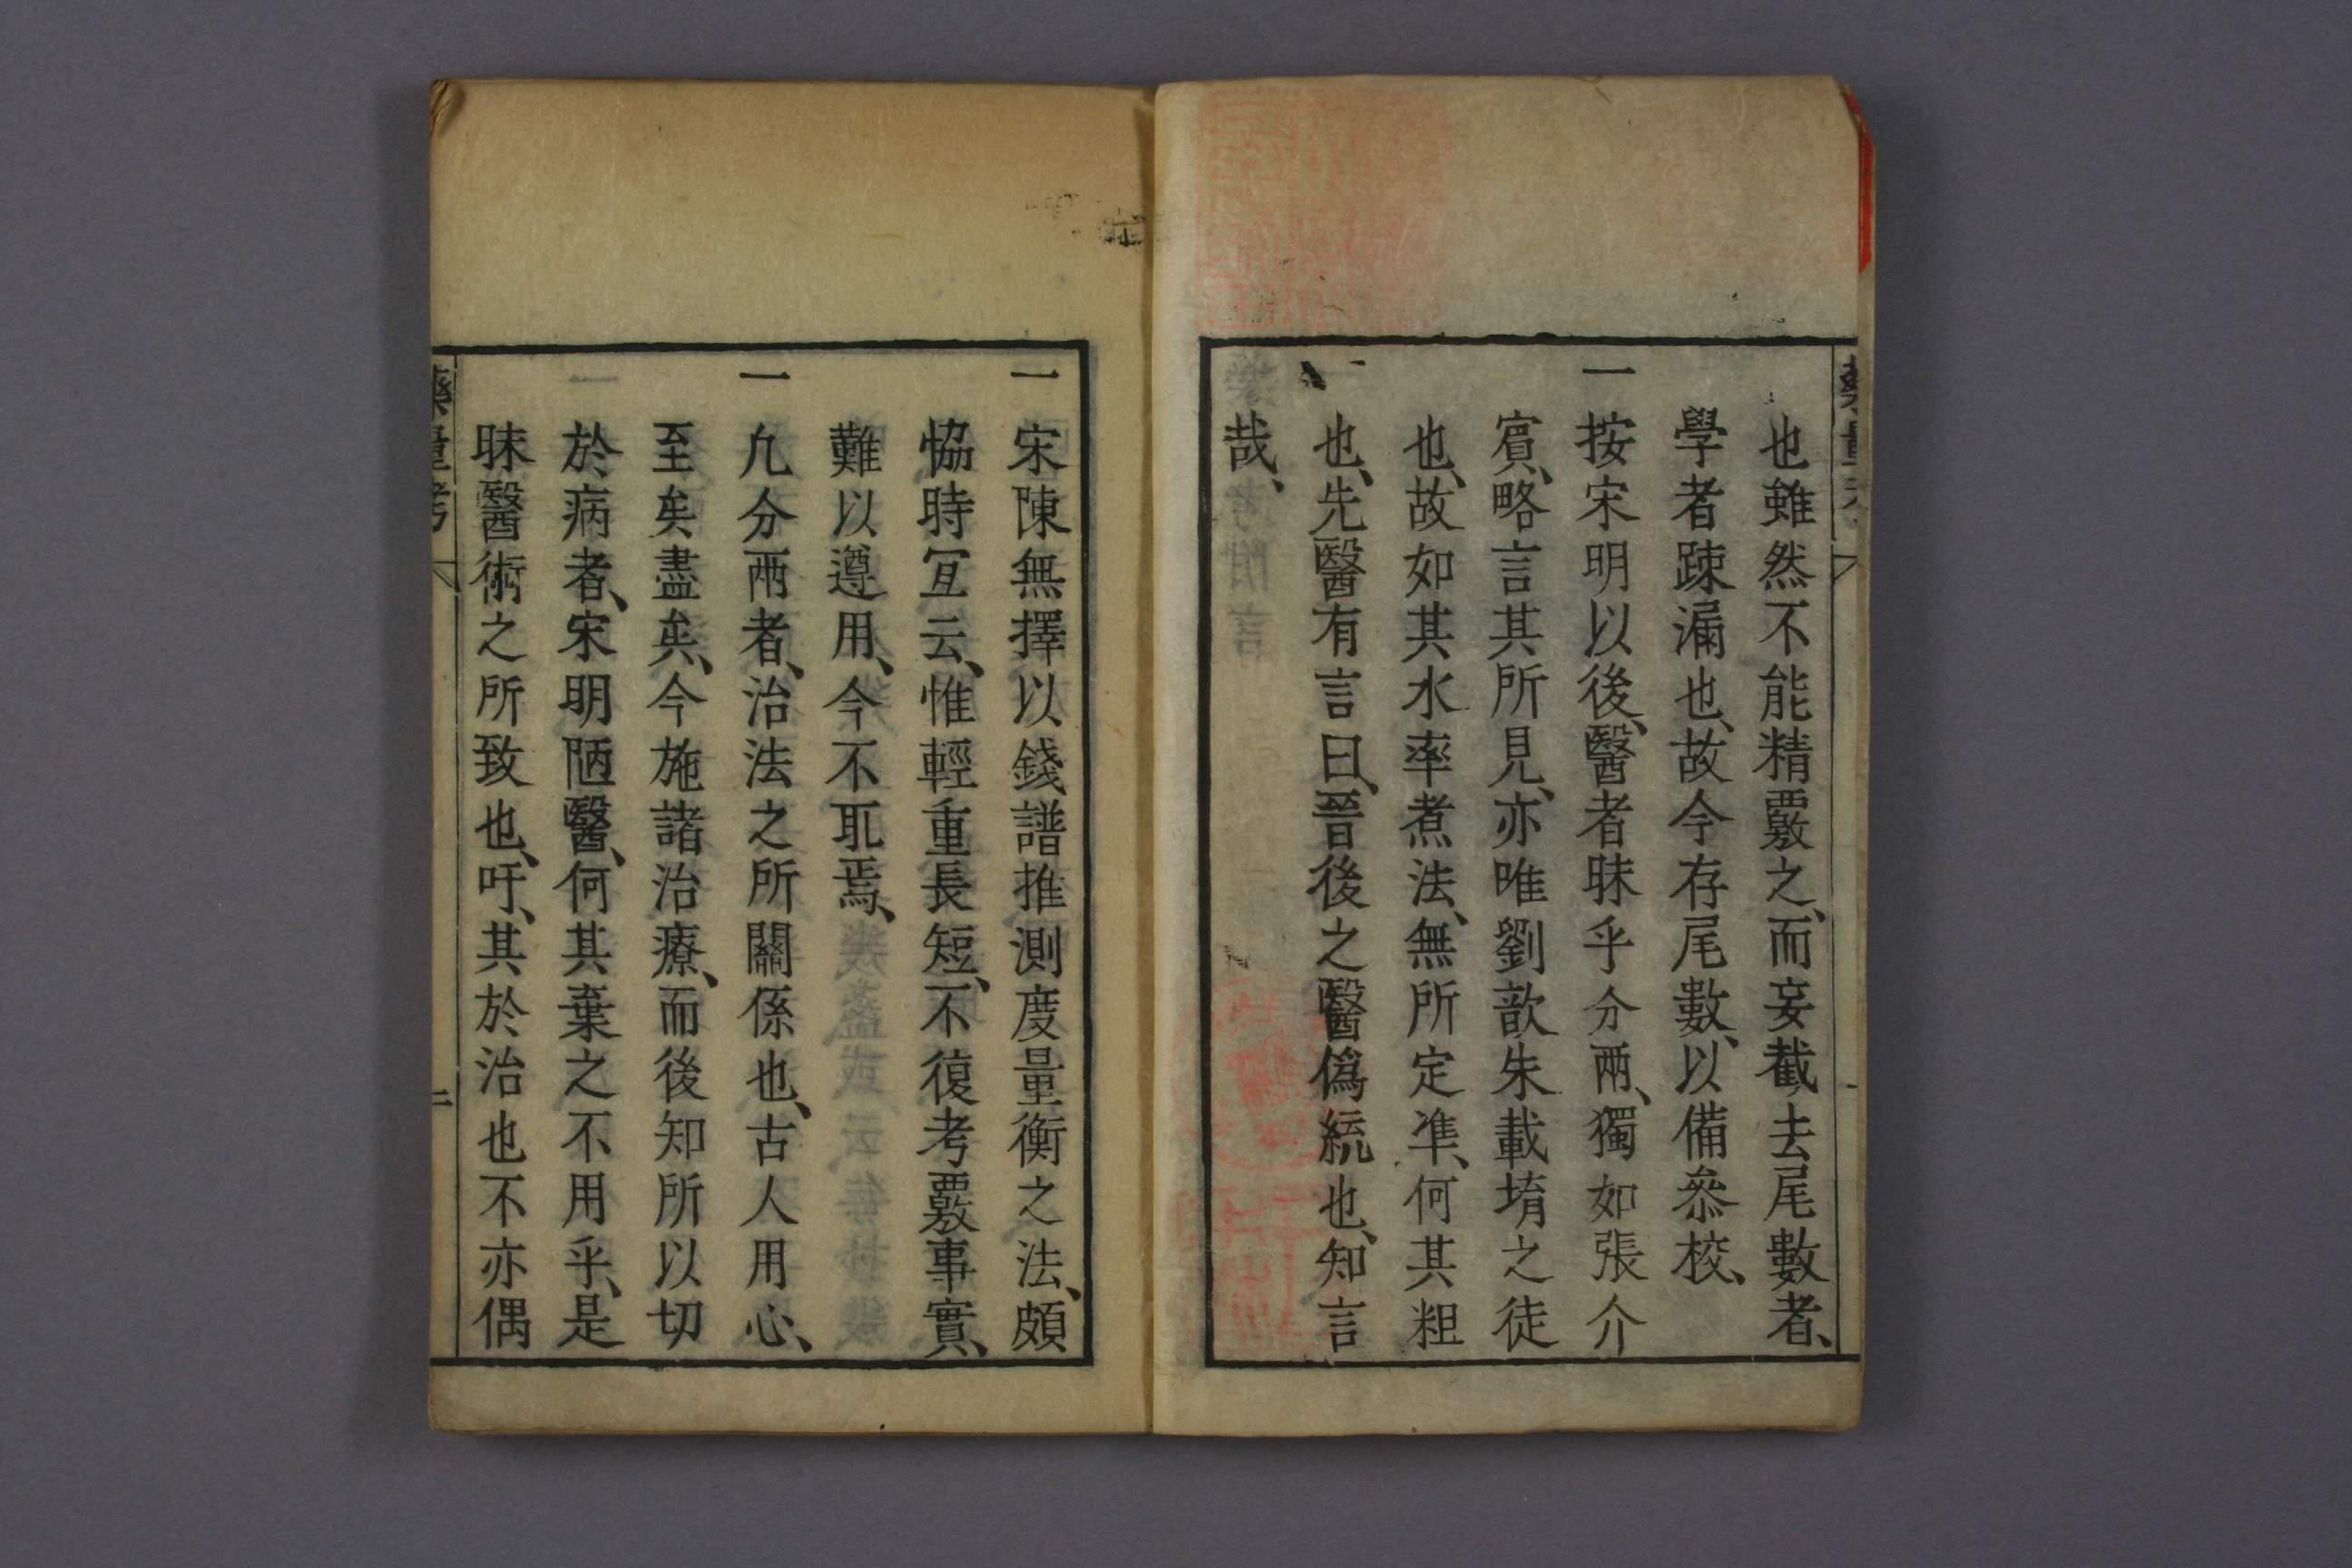 也雖然不能精覈之、而妄截去尾數者、
學者疎漏也、故今存尾數、以備叅校、
一按宋明以後、醫者昧乎分兩、獨如張介
賔、略言其所見、亦唯劉歆朱載堉之徒
也、故如其水率煮法、無所定準、何其粗
也、先醫有言曰、晉後之醫僞統也、知言
哉、
一宋陳無擇以錢譜推測度量衡之法、頗
恊時宜云、惟輕重長短、不復考覈事實、
難以遵用、今不耴焉、
一凢分兩者、治法之所關係也、古人用心、
至矣盡矣、今施諸治療、而後知所以切
於病者、宋明陋醫、何其棄之不用乎、是
昧醫術之所致也、吁、其於治也不亦偶
藥量考
二